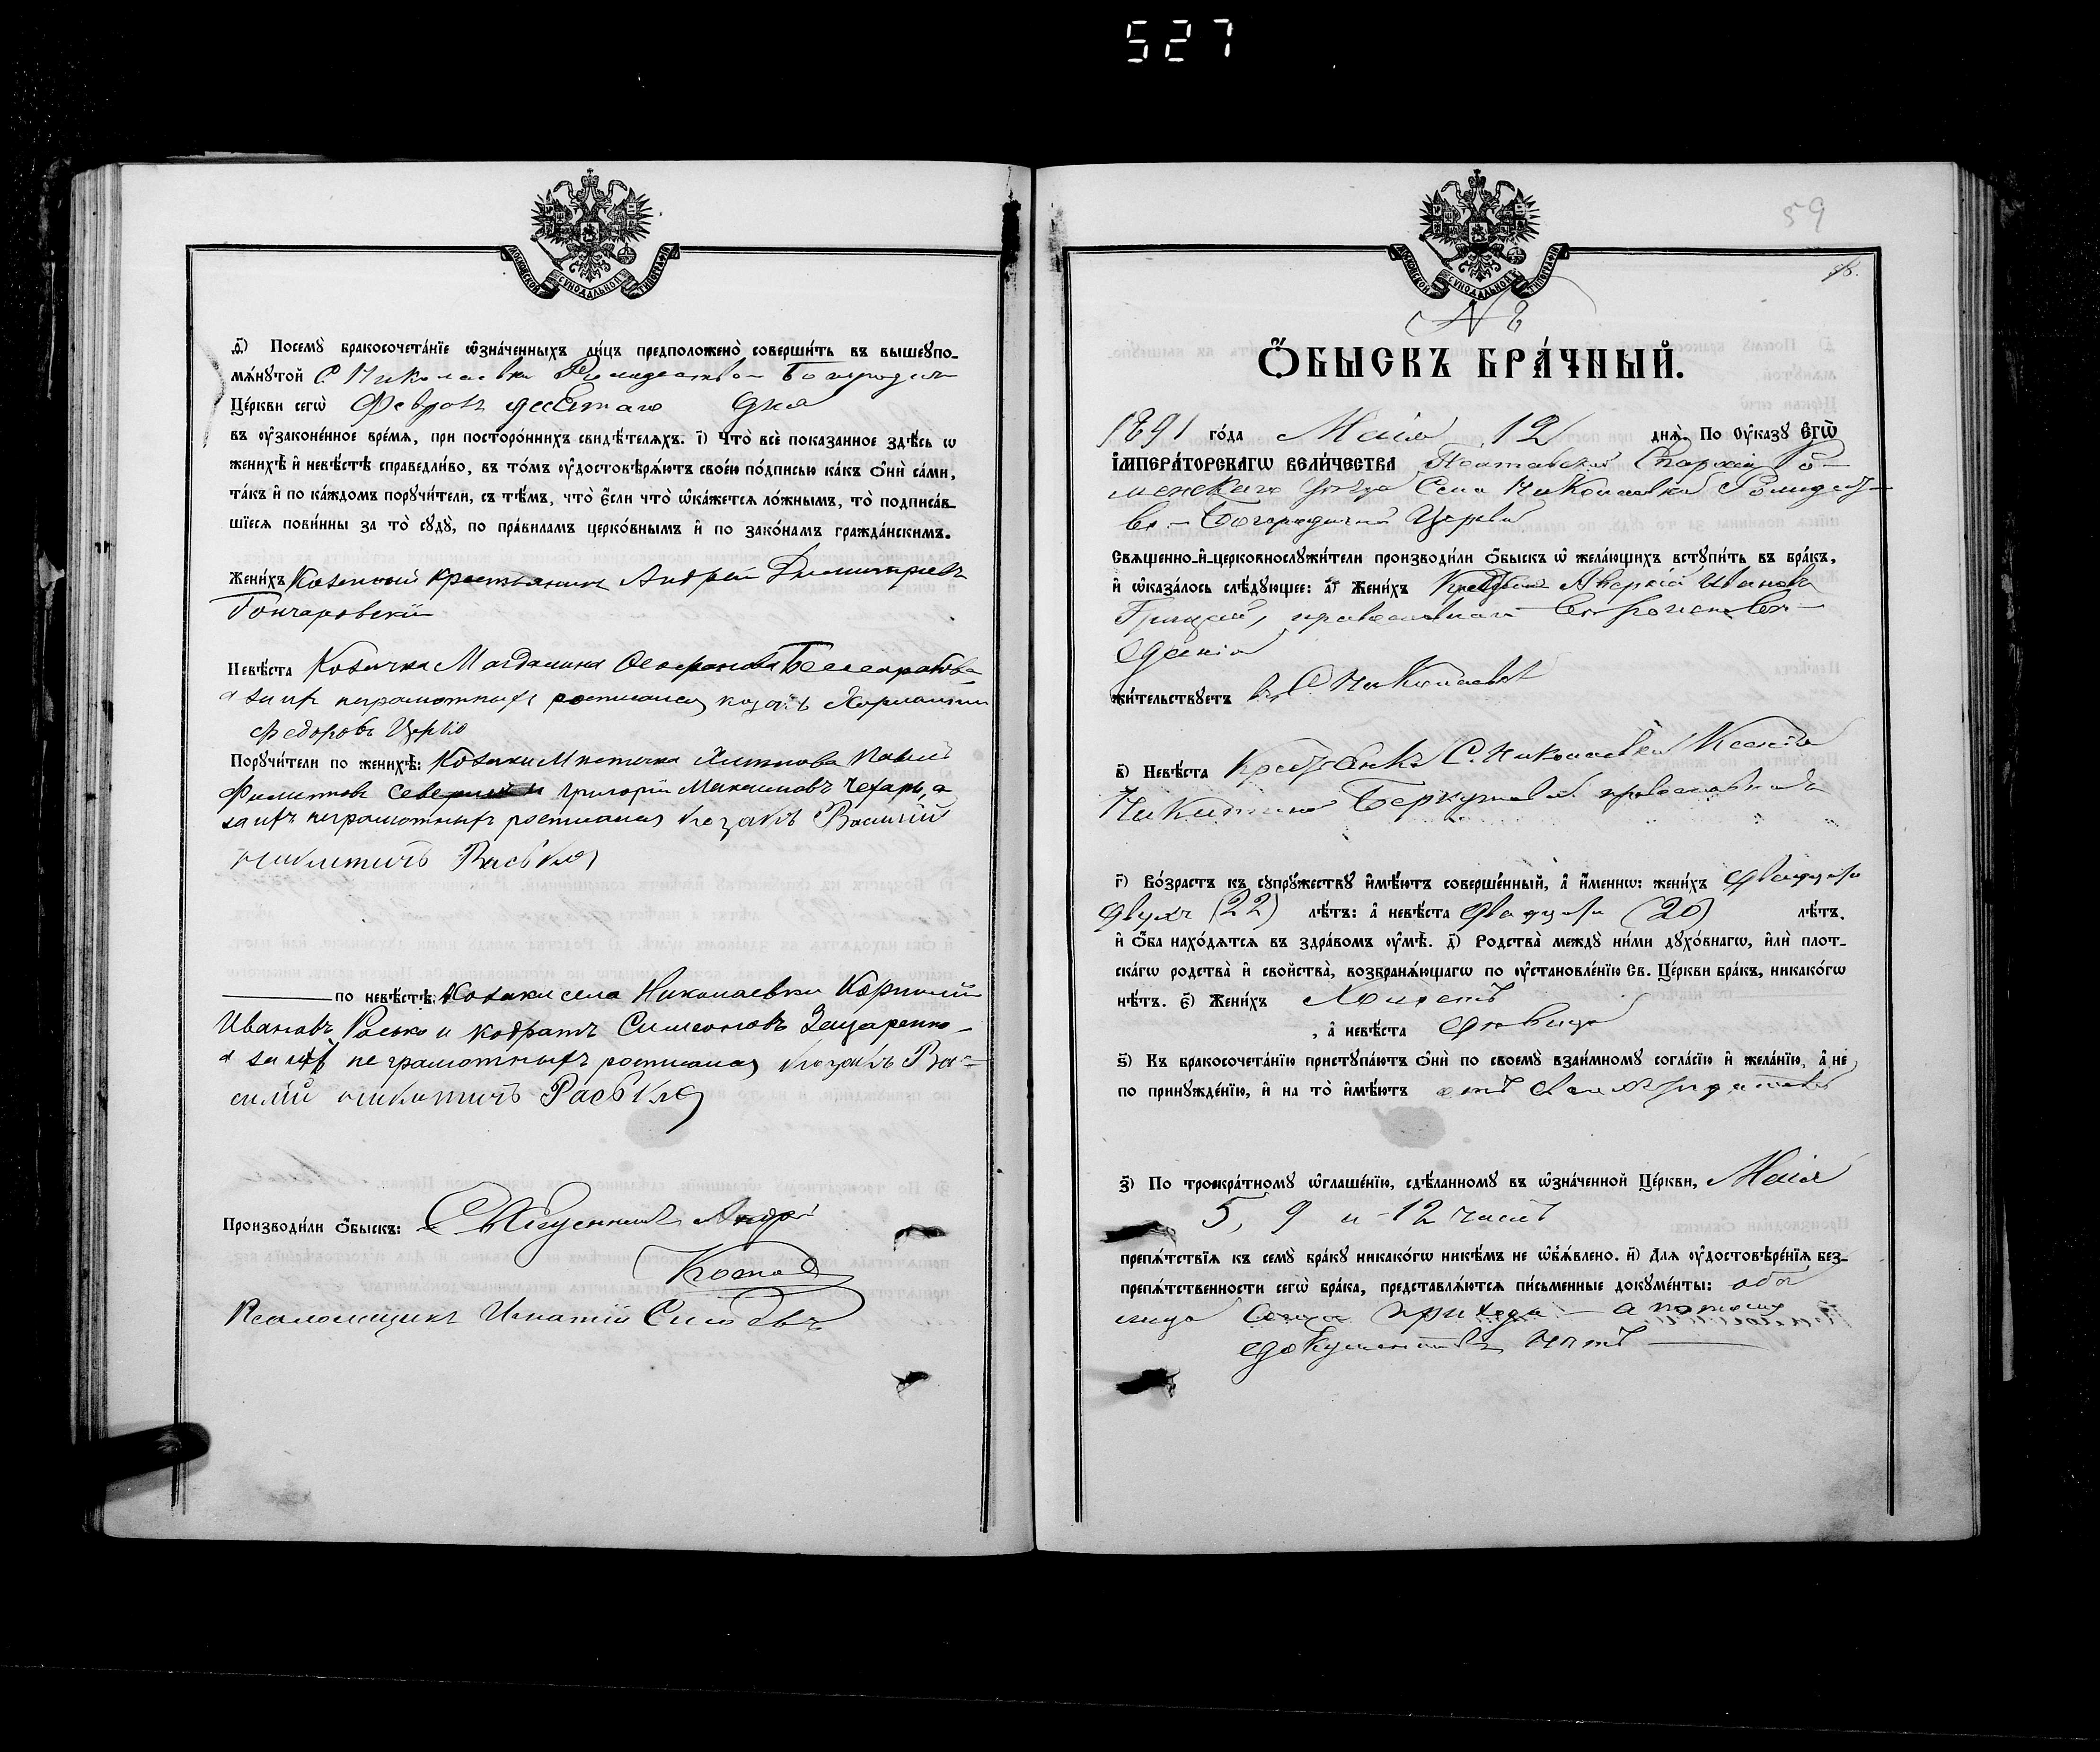 527
МОСКОВСКОЙ СѴНОДАЛЬНОЙ ТИПОГРАФІИ
Посемꙋ бракосочета́нїе ѡ҆зна́ченныхъ ли́цъ предположено̀ соверши́ть въ вышеꙋпо-
мѧ́нꙋтой С. Николаевки Рождество Богородич
Це́ркви сегѡ̀ Февраля десятаго дня
въ ᲂу҆законе́нное вре́мѧ, при посторо́ннихъ свидѣ́телѧхъ. і҃) Что̀ всѐ показанное здѣ́сь ѡ
женихѣ̀ и҆ невѣ́стѣ справедли́во, въ то́мъ ᲂу҆достовѣрѧ́ютъ свое́ю по́дписью ка́къ ѻ҆нѝ са́ми,
та́къ и҆ по ка́ждомъ порꙋчи́тели, съ тѣ́мъ, что̀ є҆́сли что̀ ѡ҆ка́жется ло́жнымъ, то̀ подписа́в-
шїеся пови́нны за то̀ сꙋдꙋ̀, по пра́виламъ церко́внымъ и҆ по зако́намъ гражда́нскимъ.
Жени́хъ Козенный крестьянинъ Андрей Димитріевъ
Гончаровскій
Невѣ́ста Козачка Магдалина
а за нр неграмотныхъ росписался козакъ Харлампий
Федоровъ Церко
Порꙋчи́тели по женихѣ̀: Козаки
Филиповъ Григорій Максимовъ Чехарь, а
за ихъ неграмотныхъ росписался козакъ Василий
Никитичъ Расько
по невѣ́стѣ: Козаки села Николаевки Корнилій
Ивановъ Расько и Кодратъ Симеоновъ Захаренко
а за ихъ неграмотныхъ росписался козакъ Ва-
силий Никитичъ Расько
Производи́ли ѻ҆́быскъ: Священникъ Андрей
Псаломщикъ Игнатій
59
МОСКОВСКОЙ СѴНОДАЛЬНОЙ ТИПОГРАФІИ
№ 8
Ѻ҆́БЫСКЪ БРА́ЧНЫЙ.
1891 го́да Маія 12 днѧ̀. По ᲂу҆казꙋ Є҆гѡ̀
І҆мпера́торскагѡ Вели́чества Полтавской Епархіи Ро-
менскаго уезда Села Николаевки Рождест-
во-Богородичной Церкви
Свѧщенно-и҆-церковнослꙋжи́тели производи́ли ѻ҆́быскъ ѡ҆ жела́ющихъ встꙋпи́ть въ бра́къ,
и҆ ѡ҆каза́лось слѣ́дꙋющее: а҃) Жени́хъ Аверкій Ивановъ
Грицай, православнаго вероисповѣ-
данія
жи́тельствꙋетъ въ С. Николаевкѣ
в҃) Невѣ́ста С. Николаевки Ксенія
Никитина православной
г҃) Во́зрастъ къ сꙋпрꙋ́жествꙋ и҆мѣ́ютъ соверше́нный, а҆ и҆́менно: жени́хъ двадцати
двухъ (22) лѣ́тъ: а҆ невѣ́ста двадцати (20) лѣ́тъ.
и҆ ѻ҆́ба нахо́дѧтся въ здра́вомъ ᲂу҆мѣ̀. д҃) Родства̀ междꙋ̀ ни́ми дꙋхо́внагѡ, и҆лѝ плот-
ска́гѡ родства̀ и҆ свойства̀, возбранѧ́ющагѡ по ᲂу҆становле́нїю Св. Це́ркви бра́къ, никако́гѡ
нѣ́тъ. є҃) Жени́хъ Холостъ
, а҆ невѣ́ста дѣвица
ѕ҃) Къ бракосочета́нїю пристꙋпа́ютъ ѻ҆нѝ по своемꙋ̀ взаи́мномꙋ согла́сїю и҆ жела́нїю, а҆ не
по принꙋжде́нїю, и҆ на то̀ и҆мѣ́ютъ отъ
з҃) По трократномꙋ ѡ҆глаше́нїю, сдѣ́ланномꙋ въ ѡ҆зна́ченной Це́ркви, Маія
5, 9 и 12 чиселъ
препѧ́тствїѧ къ семꙋ̀ бра́кꙋ никако́гѡ никѣ́мъ не ѡ҆б̾ѧ́влено. и҃) Длѧ ᲂу҆достовѣре́нїѧ без-
препѧ́тственности сегѡ̀ бра́ка, представлѧ́ются пи́сьменные докꙋме́нты: оба
лица сего прихода а потому
документовъ нѣтъ